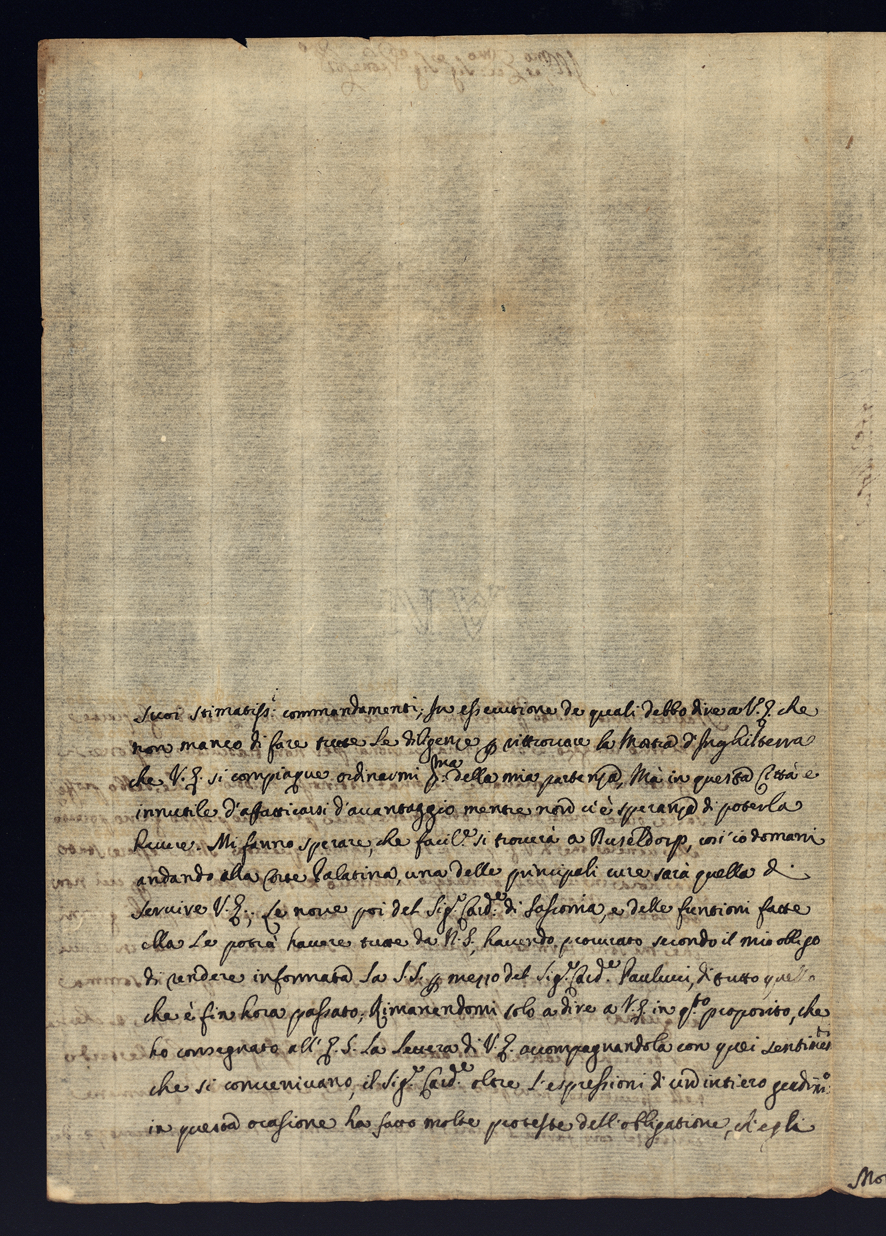 suoi stimatiss.i commandamenti; In essecutione de quali debbo dire a V.E. che
non manco di fare tutte le diligenze per rittrovare la d'Inghilterra
che V.E. si compiaque ordinarmi p.ma della mia partenza, Mà in questa Città è
innutile d'affatticarsi d'avantaggio mentre non vi è speranza di poterla
havere. Mi fanno sperare, che facil.e si troverà a Duseldorp, così io domani
andando alla Corte Palatina, una delle principali cure sarà quella di
servire V.E.; Le nove poi del Sig.r Card.e di Sassonia, e delle funtioni fatte
ella le potrà havere tutte da N.S., havendo procurato secondo il mio obligo
di rendere informata la S.S. per mezzo del Sig.r Card.e Paulucci, di tutto quello
che è fin hora passato; Rimanendomi solo a dire a V.E. in q.sto proposito, che
ho consegnato all'E.S. la lettera di V.E. accompagnandola con quei sentim.ti
che si convenivano, il Sig.r Card.e oltre l'espressioni di un intiero
in questa ocasione ha fatto molte proteste dell'obligatione, ch'egli